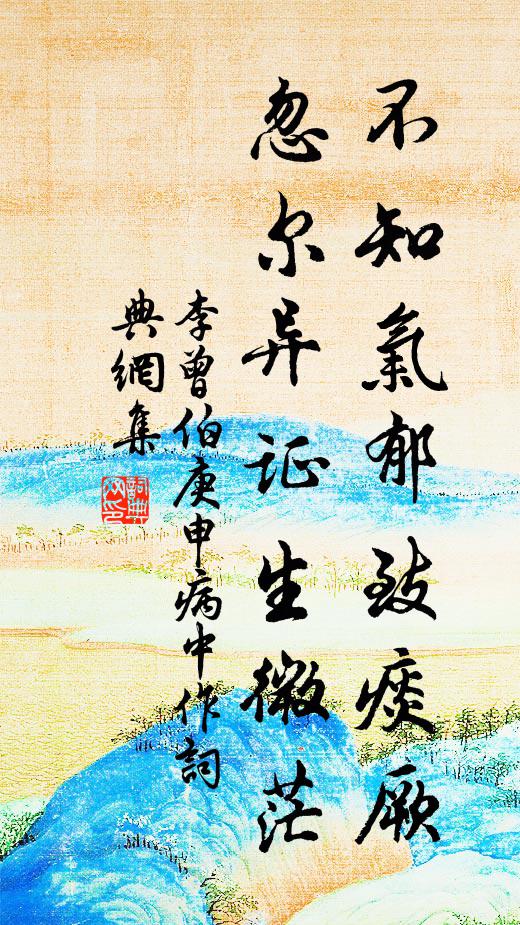 不知氣郁致痰厥
忽尔异证生微茫
李曾伯庚申病中作詞
典網集